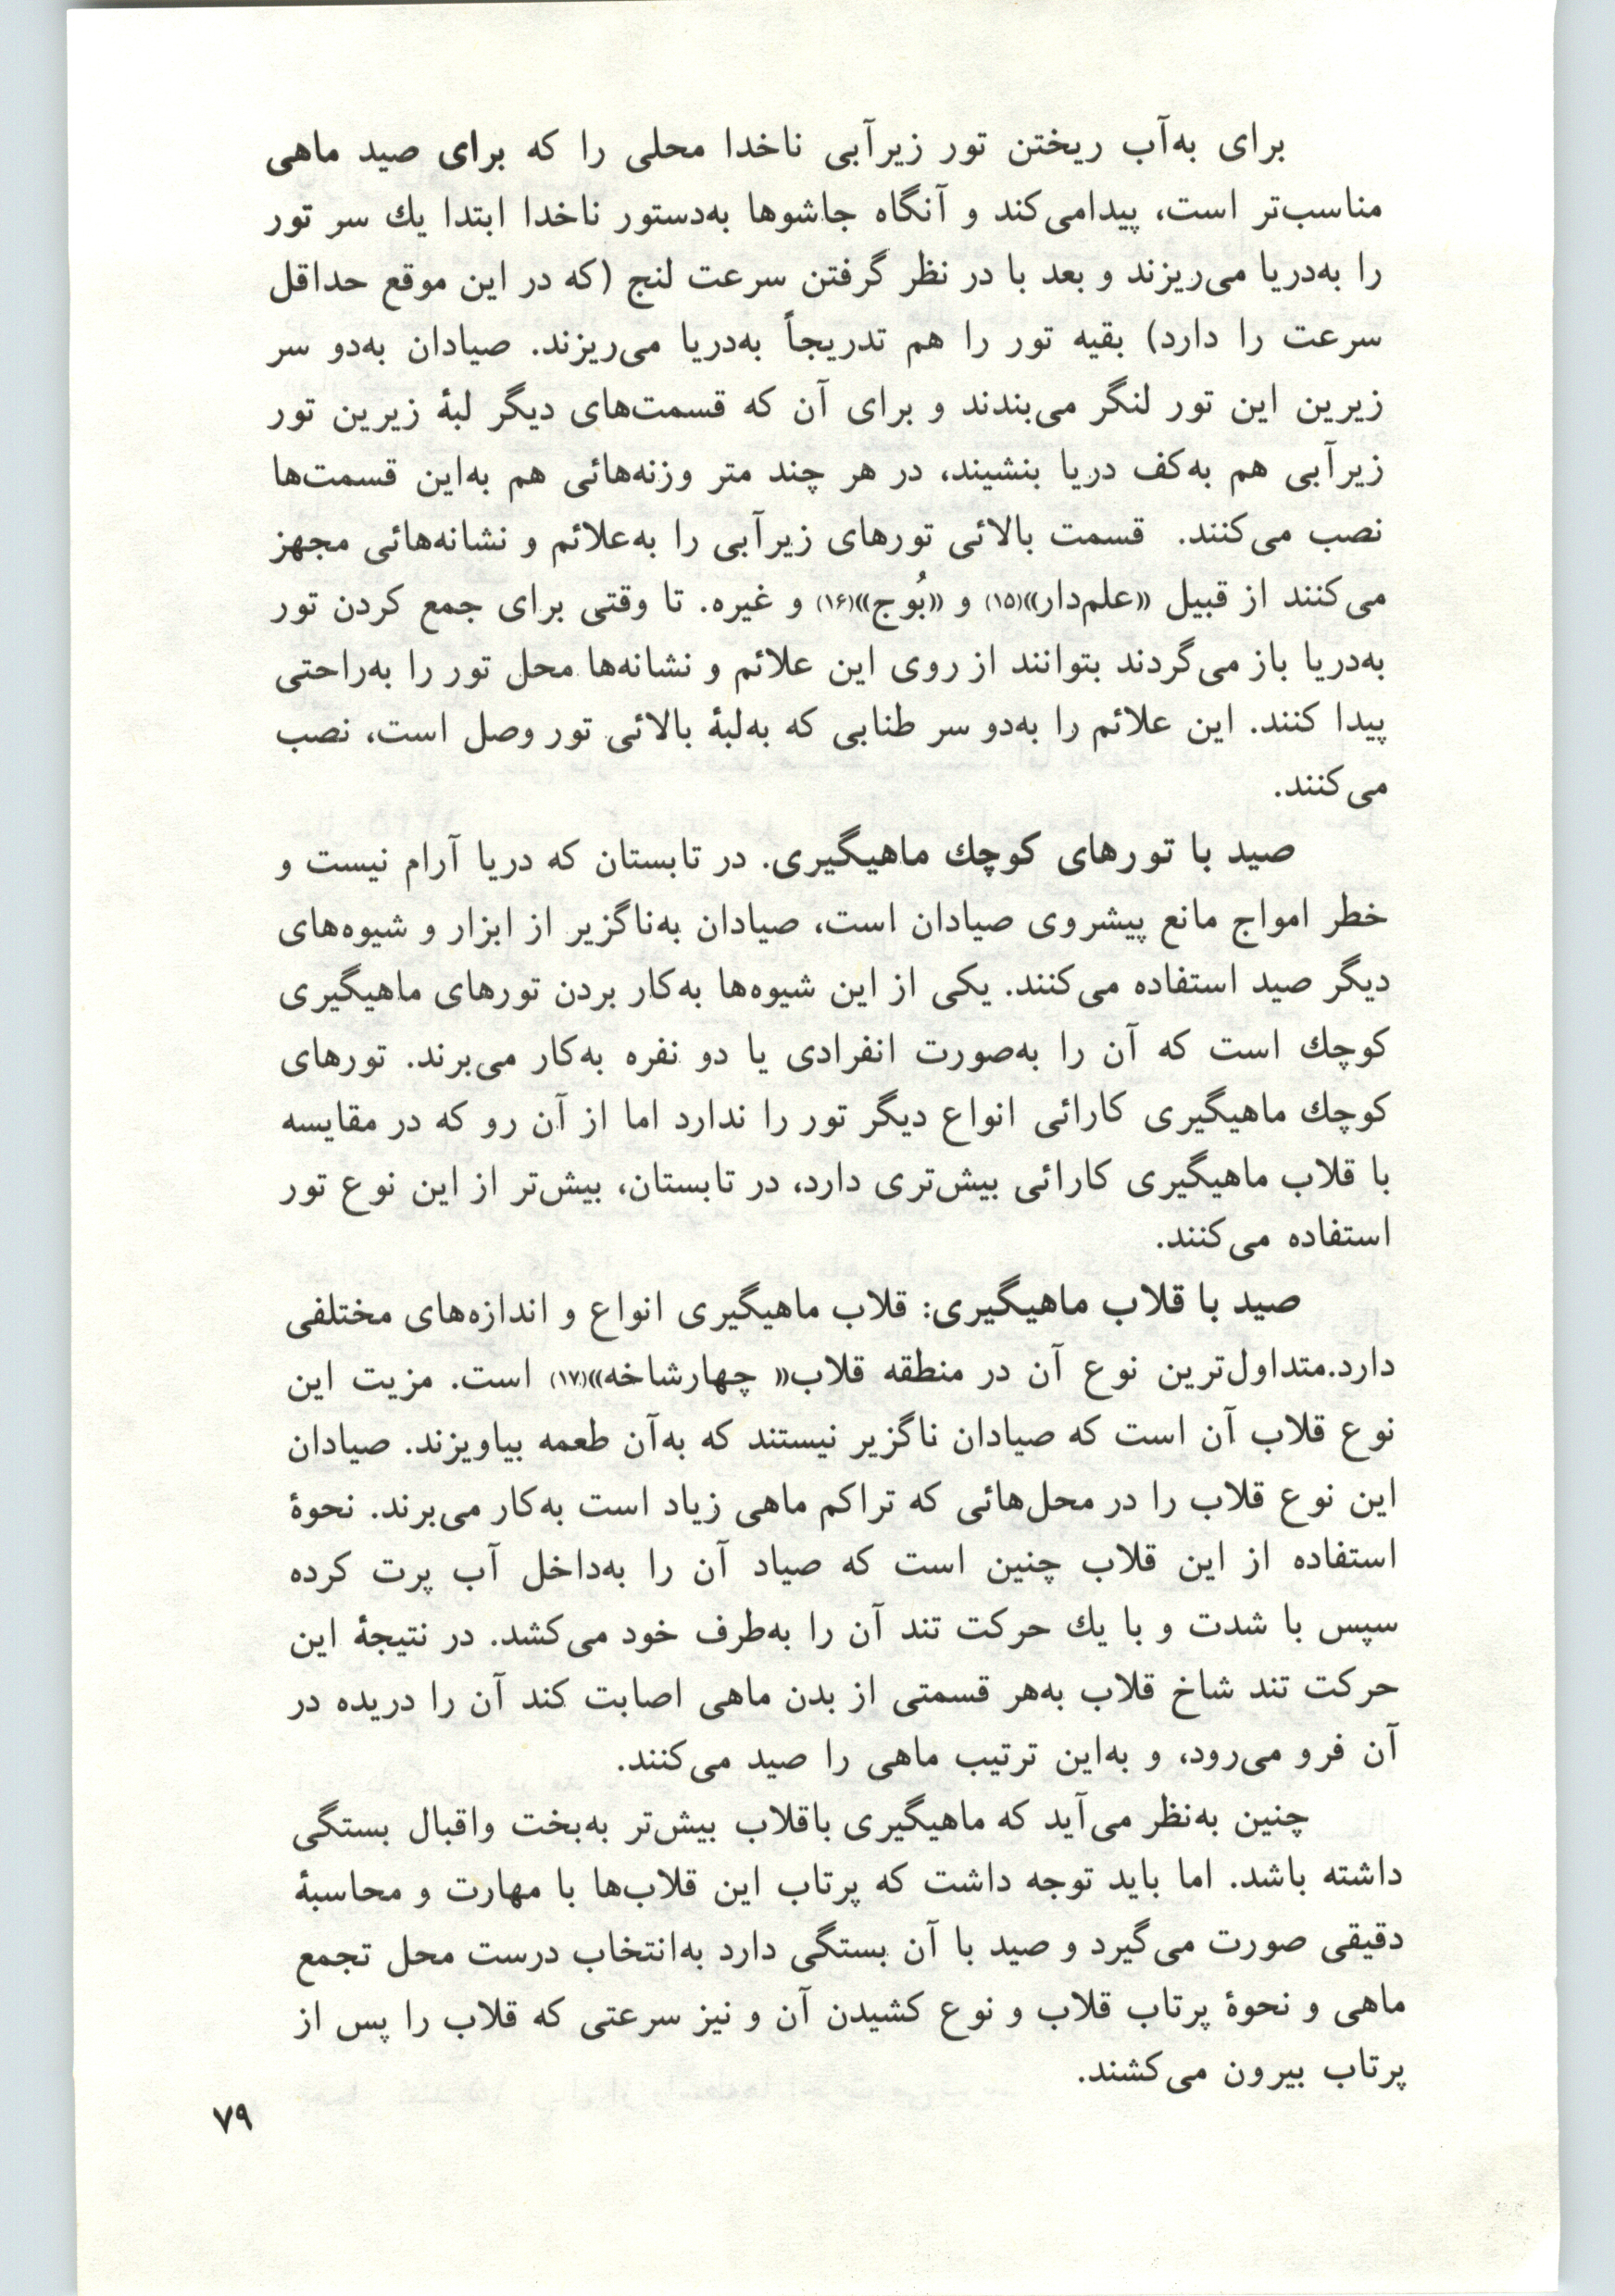 برای به‌آب ریختن تور زیرآبی ناخدا محلی را که برای صید ماهی
مناسب‌تر است، پیدامی‌کند و آنگاه جاشوها به‌دستور ناخدا ابتدا یك سر تور
را به‌دریا می‌ریزند و بعد با در نظر گرفتن سرعت لنج (که در این موقع حداقل
سرعت را دارد) بقیه تور را هم تدریجاً به‌دریا می‌ریزند. صیادان به‌دو سر
زیرین این تور لنگر می‌بندند و برای آن که قسمت‌های دیگر لبهٔ زیرین تور
زیرآبی هم به‌کف دریا بنشیند، در هر چند متر وزنه‌هائی هم به‌این قسمت‌ها
نصب می‌کنند. قسمت بالائی تورهای زیرآبی را به‌علائم و نشانه‌هائی مجهز
می‌کنند از قبیل «علم‌دار»(۱۵) و «بُوج»(۱۶) و غیره. تا وقتی برای جمع کردن تور
به‌دریا باز می‌گردند بتوانند از روی این علائم و نشانه‌ها محل تور را به‌راحتی
پیدا کنند. این علائم را به‌دو سر طنابی که به‌لبهٔ بالائی تور وصل است، نصب
می‌کنند.
صید با تورهای کوچك ماهیگیری. در تابستان که دریا آرام نیست و
خطر امواج مانع پیشروی صیادان است، صیادان به‌ناگزیر از ابزار و شیوه‌های
دیگر صید استفاده می‌کنند. یکی از این شیوه‌ها به‌کار بردن تورهای ماهیگیری
کوچك است که آن را به‌صورت انفرادی یا دو نفره به‌کار می‌برند. تورهای
کوچك ماهیگیری کارائی انواع دیگر تور را ندارد اما از آن رو که در مقایسه
با قلاب ماهیگیری کارائی بیش‌تری دارد، در تابستان، بیش‌تر از این نوع تور
استفاده می‌کنند.
صید با قلاب ماهیگیری: قلاب ماهیگیری انواع و اندازه‌های مختلفی
دارد.متداول‌ترین نوع آن در منطقه قلاب« چهارشاخه»(۱۷) است. مزیت این
نوع قلاب آن است که صیادان ناگزیر نیستند که به‌آن طعمه بیاویزند. صیادان
این نوع قلاب را در محل‌هائی که تراکم ماهی زیاد است به‌کار می‌برند. نحوهٔ
استفاده از این قلاب چنین است که صیاد آن را به‌داخل آب پرت کرده
سپس با شدت و با یك حرکت تند آن را به‌طرف خود می‌کشد. در نتیجهٔ این
حرکت تند شاخ قلاب به‌هر قسمتی از بدن ماهی اصابت کند آن را دریده در
آن فرو می‌رود، و به‌این ترتیب ماهی را صید می‌کنند.
چنین به‌نظر می‌آید که ماهیگیری باقلاب بیش‌تر به‌بخت واقبال بستگی
داشته باشد. اما باید توجه داشت که پرتاب این قلاب‌ها با مهارت و محاسبهٔ
دقیقی صورت می‌گیرد و صید با آن بستگی دارد به‌انتخاب درست محل تجمع
ماهی و نحوهٔ پرتاب قلاب و نوع کشیدن آن و نیز سرعتی که قلاب را پس از
پرتاب بیرون می‌کشند.
۷۹